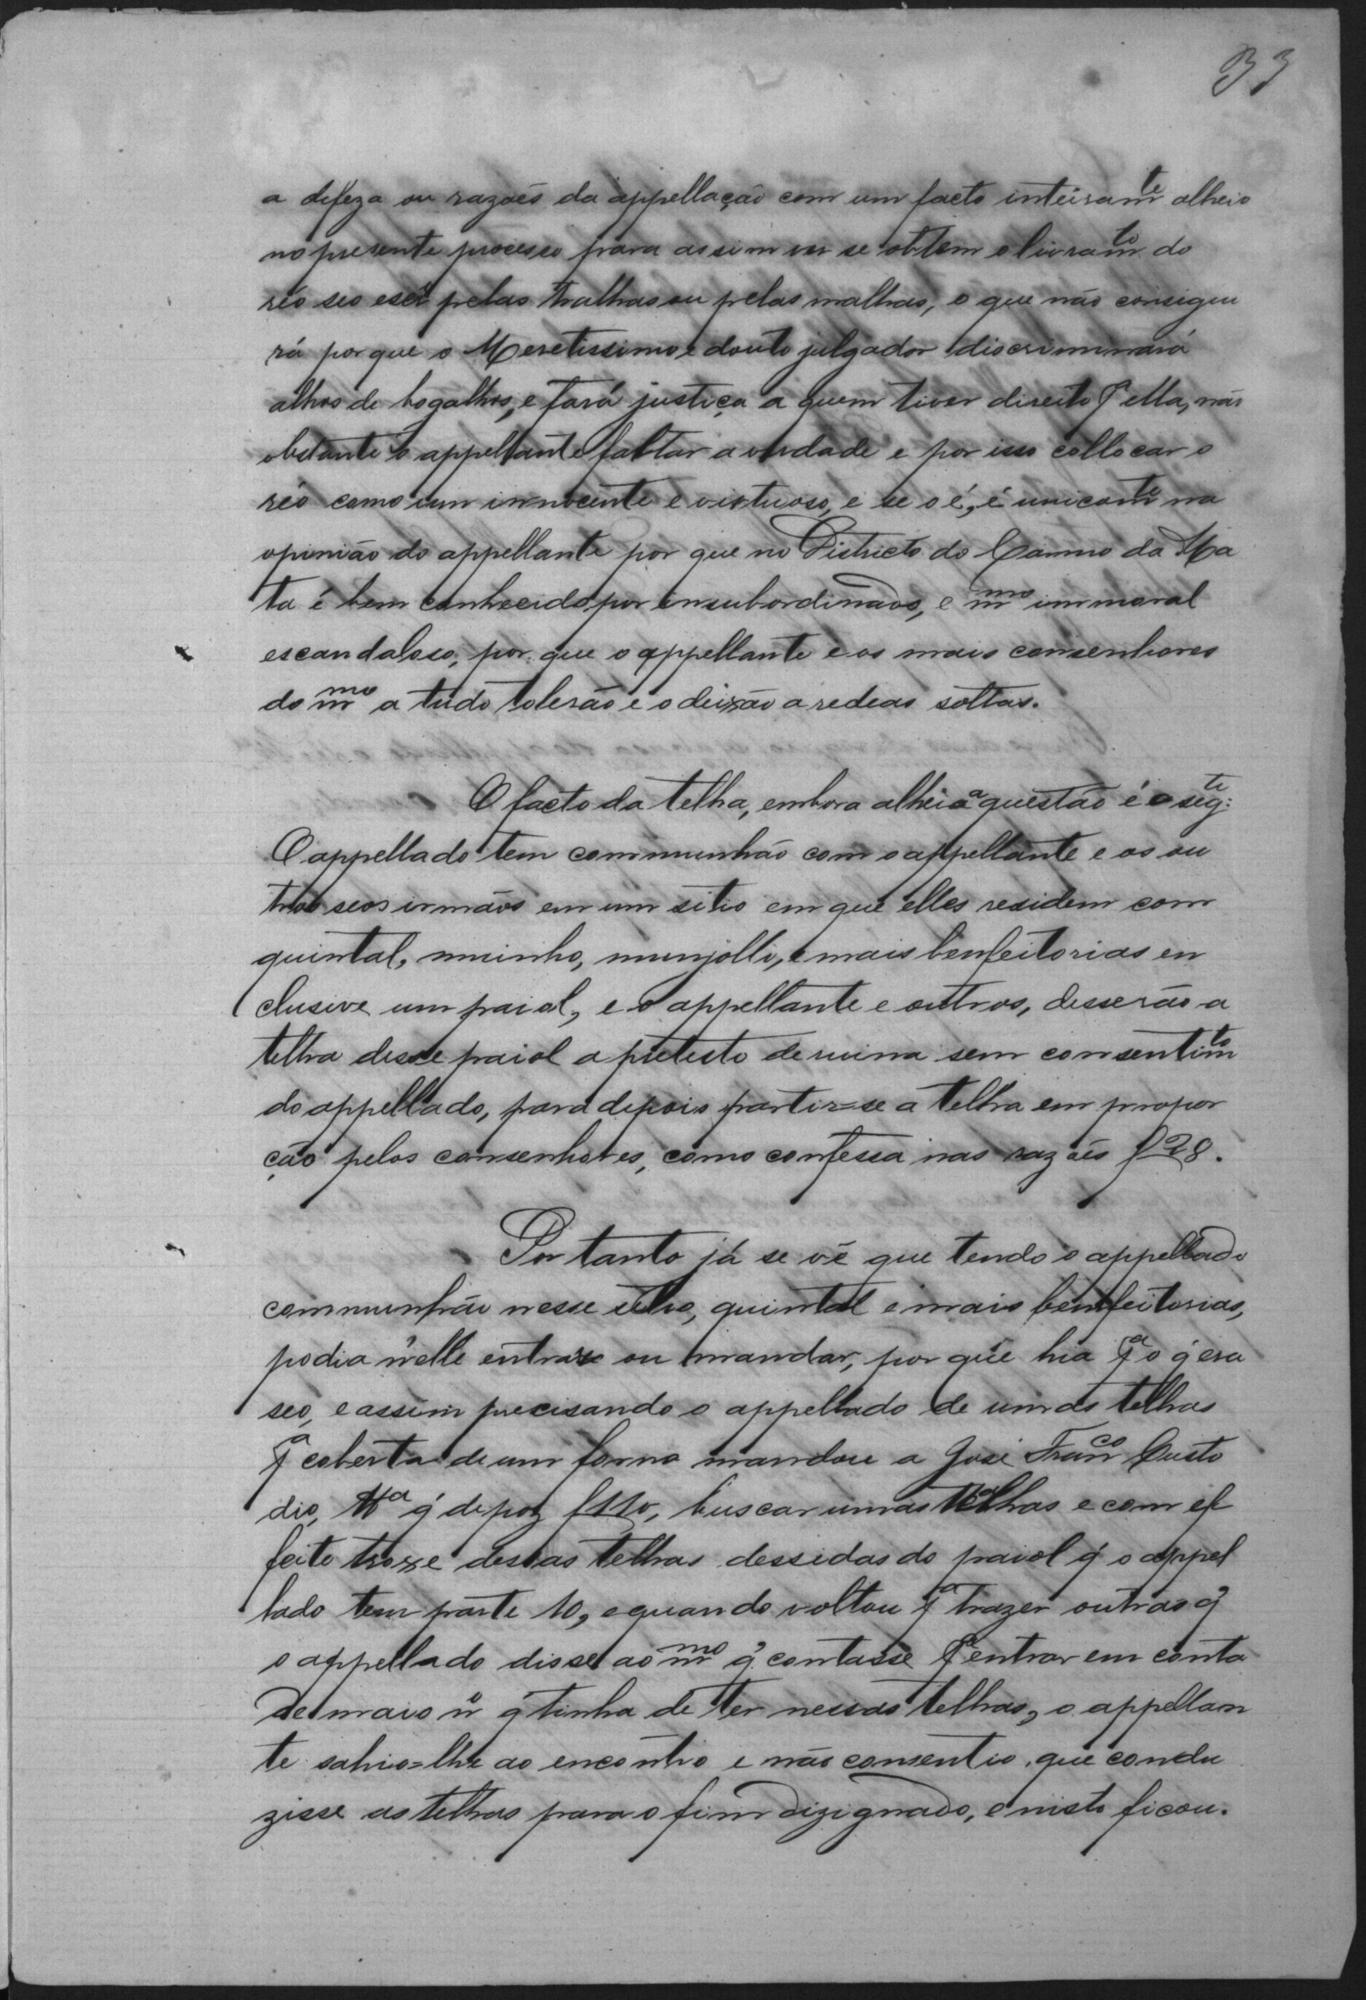 33
a defeza ou razoẽs da appellação com um facto inteiram.te alheio
no presente processo para assim ver se obtem o livram.to do
réo seo escr.º pelas tralhas ou pelas malhas, o que não consegui
rá por que o Meretissimo e douto julgador discriminará
alhos de bogalhos, e fará justiça a quem tiver direito p.ª ella, não
obstante o appellante faltar a verdade e por isso collocar o
réo como um innocente e virtuoso, e se o é, é unicam.te na
opinião do appellante por que no Districto do Carmo da Ma
ta é bem conhecido por insubordinado, e m.mo immoral
escandaloso, por que o appellante e os mais consenhores
do m.mo a tudo tolerão e o deixão a redeas soltas.
O facto da telha, embora alheio a questão é o seg.te:
O appellado tem communhão com o appellante e os ou
tros seos irmãos em um sitio em que elles residem com
quintal, muinho, munjollo, e mais benfeitorias en
clusive um paiol, e o appellante e outros, desserão a
telha desse paiol a pretesto de ruina sem consentim.to
do appellado, para depois partir=se a telha em propor
ção pelos consenhores, como confessa nas razoẽs f 28.
Por tanto já se vê que tendo o appellado
communhão nesse sitio, quintal e mais benfeitorias,
podia n'elle entrar ou mandar, por que hia p.ª o q' era
seo, e assim precisando o appellado de umas telhas
p.ª coberta de um forno mandou a José Fran.co Custo
dio, tt.ª q' depoz f 11v, buscar umas telhas e com ef
feito troxe dessas telhas dessidas do paiol q' o appel
lado tem parte 10, e quando voltou p.ª trazer outras q'
o appellado disse ao m.mo q' contasse p.ª entrar em conta
de maior nº q' tinha de ter nessas telhas, o appellan
te sahio=lhe ao encontro e não consentio que condu
zisse as telhas para o fim dizignado, e nisto ficou.